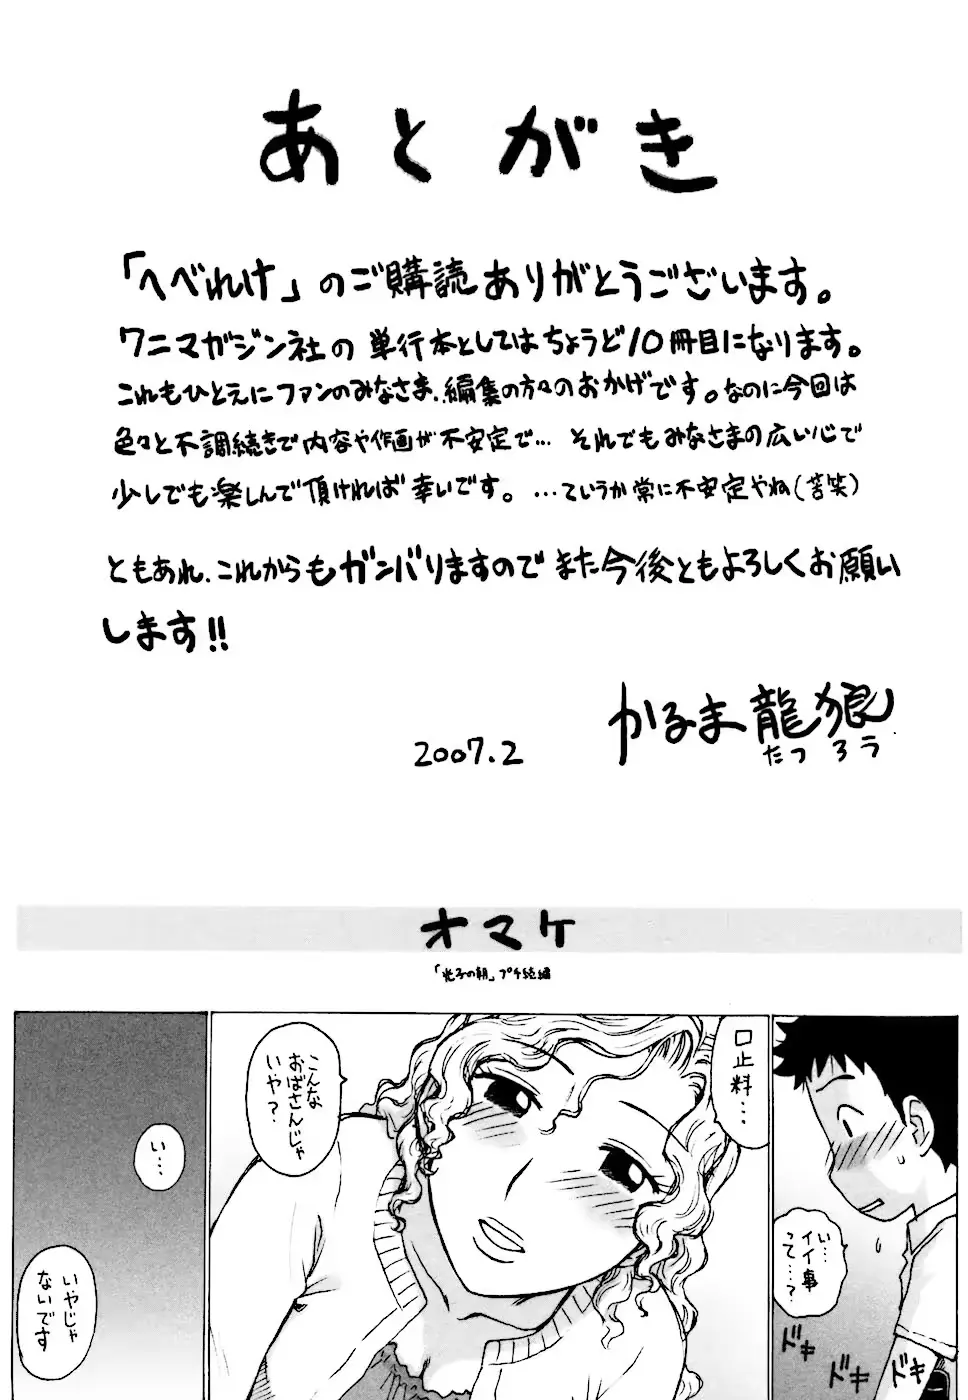 あとがき
「へべれけ」のご購読ありがとうございます。
ワニマガジン社の単行本としてはちょうど10冊目になります。
これもひとえにファンのみなさま、編集の方々のおかげです。なのに今回は
色々と不調続きで内容や作画が不安定で… それでもみなさまの広い心で
少しでも楽しんで頂ければ幸いです。…ていうか常に不安定やね(苦笑)
ともあれ、これからもガンバりますのでまた今後ともよろしくお願い
します!!
かるま龍狼
たつろう
2007.2
オマケ
「光子の朝」プチ続編
い…
イイ事
って…?
ドキ
ドキ
ドキ
口止料…
こんな
おばさんじゃ
いや?
い…
いやじゃ
ないです